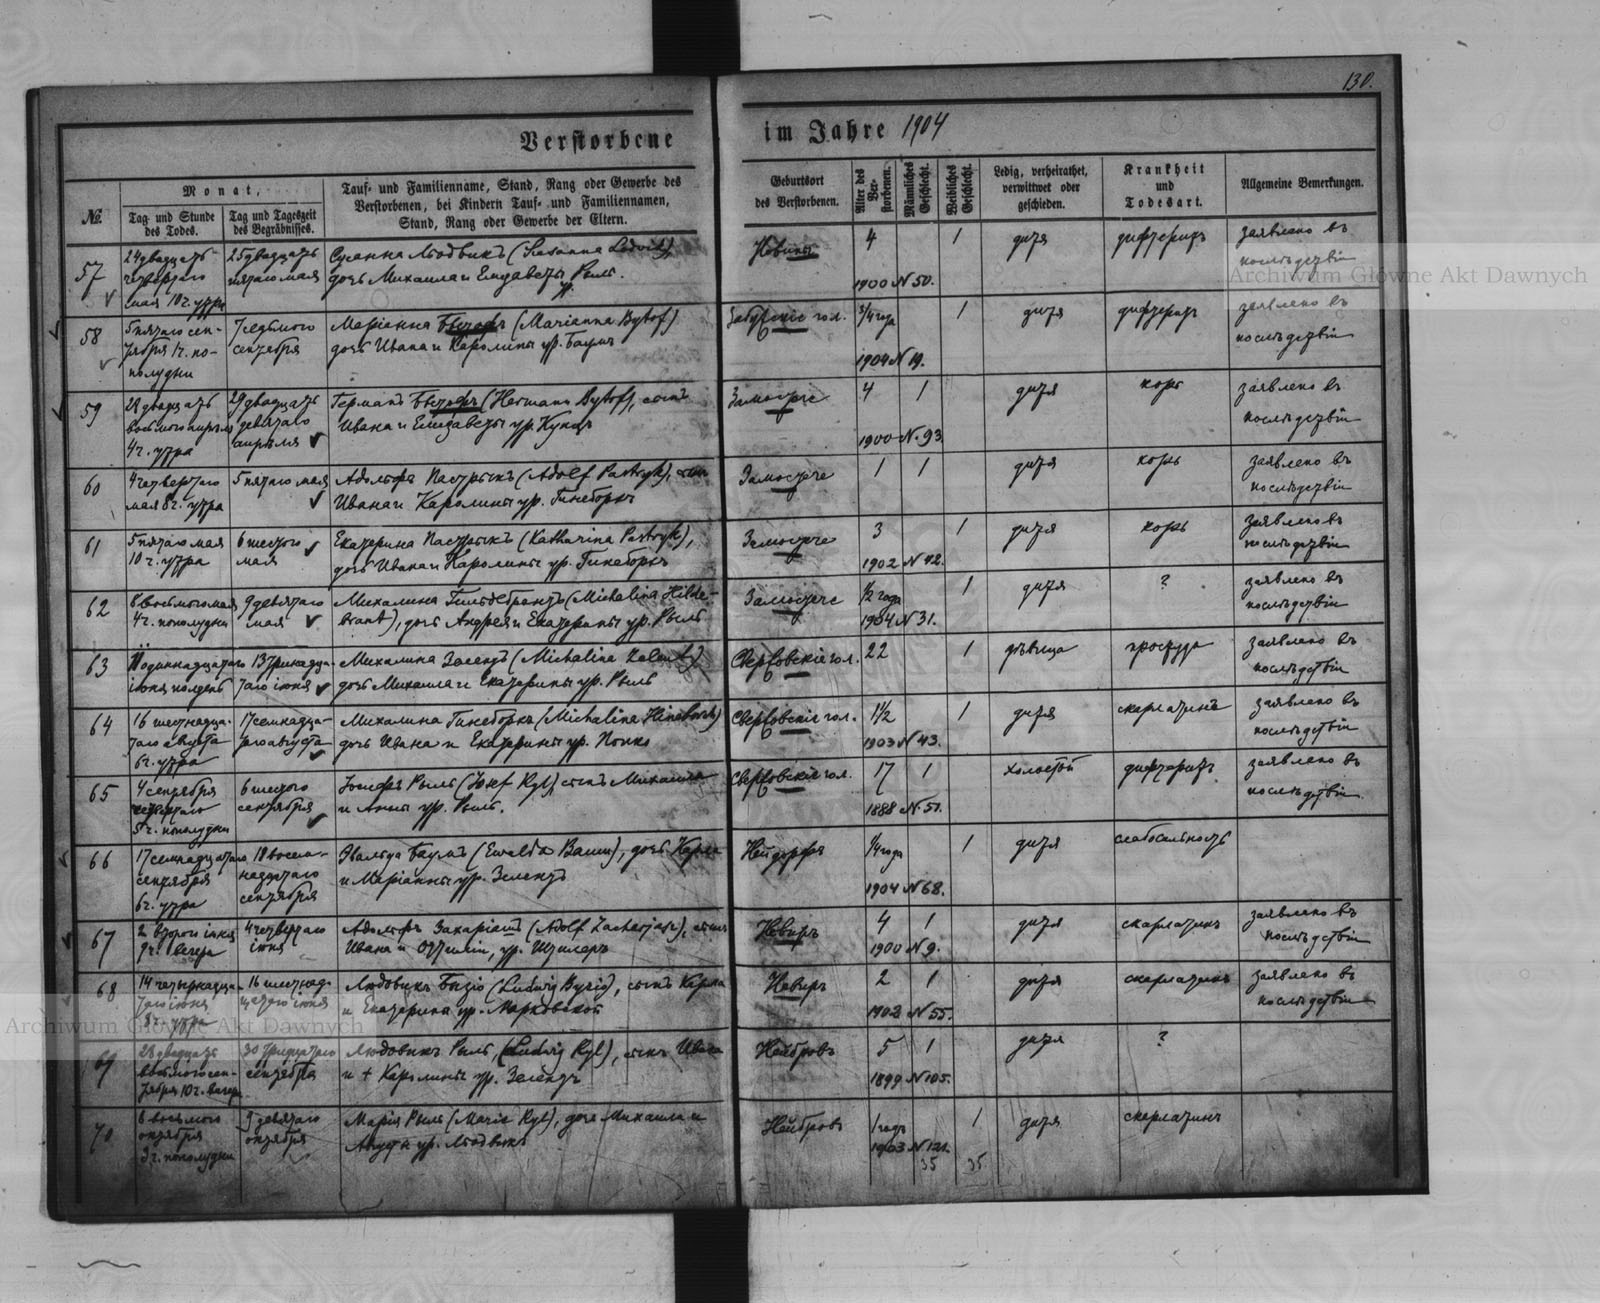 130.
Verstorbene im Jahre 1904
№.
Monat,
Tag und Stunde des Todes.
Tag und Tageszeit des Begräbnisses.
Tauf- und Familienname, Stand, Rang oder Gewerbe des
Verstorbenen, bei Kindern Tauf- und Familiennamen,
Stand, Rang oder Gewerbe der Eltern.
Geburtsort
des Verstorbenen.
Alter des Ver-
storbenen.
Männliches
Geschlecht.
Weibliches
Geschlecht.
Ledig, verheirathet,
verwittwet oder
geschieden.
Krankheit
und
Todesart.
Allgemeine Bemerkungen.
57
24 двадцать
четвертаго
мая 10 ч. утра
25 двадцать
пятаго мая
Сусанна Людвикъ (Susanna Ludwik),
дочь Михаила и Елизаветы ур. Рыль.
Новины
4
1
дитя
дифтеритъ
заявлено въ
послѣдствіи
1900 N 50.
58
5 пятаго сен-
тября 1 ч. по-
полудни
7 седьмого
сентября
Маріанна Бытофъ (Marianna Bytof)
дочь Ивана и Каролины ур. Баумъ
гол.
3/4 года
1
дитя
дифтеритъ
заявлено въ
послѣдствіи
1904 N 19.
59
28 двадцать
восьмого апрѣля
4 ч. утра
29 двадцать
девятаго
апрѣля
Германъ Бытофъ (Hermann Bytoff), сынъ
Ивана и Елизаветы ур. Кунцъ
Замостече
4
1
дитя
корь
заявлено въ
послѣдствіи
1900 N. 93
60
4 четвертаго
мая 8 ч. утра
5 пятаго мая
Адольфъ Пастрыкъ (Adolf Pastryk), сынъ
Ивана и Каролины ур. Гинеборхъ
Замостече
1
1
дитя
корь
заявлено въ
послѣдствіи
61
5 пятаго мая
10 ч. утра
6 шестого
мая
Екатерина Пастрыкъ (Katharina Pastryk),
дочь Ивана и Каролины ур. Гинеборхъ
Замостече
3
1
дитя
корь
заявлено въ
послѣдствіи
1902 N 42.
62
8 восьмого мая
4 ч. пополудни
9 девятаго
мая
Михалина Гильдебрантъ (Michalina Hilde-
brant), дочь Андрея и Екатерины ур. Рыль
Замостече
1/2 года
1
дитя
?
заявлено въ
послѣдствіи
1904 N 31.
63
11 одиннадцатаго
іюня полдень
13 тринадца-
таго іюня
Михалина Зелентъ (Michalina Zelent)
дочь Михаила и Екатерины ур. Рыль
Свержовскіе гол.
22
1
дѣвица
простуда
заявлено въ
послѣдствіи
64
16 шестнадца-
таго августа
6 ч. утра
17 семнадца-
таго августа
Михалина Гинеборхъ (Michalina Hineborch)
дочь Ивана и Екатерины ур. Попко
Свержовскіе гол.
1 1/2
1
дитя
скарлатинъ
заявлено въ
послѣдствіи
1903 N 43.
65
4 сентября
четвертаго
5 ч. пополудни
6 шестого
сентября
Іосифъ Рыль (Josef Ryl), сынъ Михаила
и Анны ур. Рыль.
Свержовскіе гол.
17
1
холостой
дифтеритъ
заявлено въ
послѣдствіи
1888 N 51.
66
17 семнадцатаго
сентября
6 ч. утра
18 восем-
надцатаго
сентября
Эвальда Баумъ (Ewalda Baum), дочь Карла
и Маріанны ур. Зелентъ
Нейдорфъ
1/4 года
1
дитя
слабосильность
1904 N 68.
67
2 второго іюня
9 ч. вечера
4 четвертаго
іюня
Адольфъ Захаріашъ (Adolf Zacharjasz), сынъ
Ивана и Оттиліи, ур. Шиллеръ
Невиръ
4
1
дитя
скарлатинъ
заявлено въ
послѣдствіи
1900 N 9.
68
14 четырнадца-
таго іюня
8 ч. утра
16 шестнад-
цатаго іюня
Людовикъ Бызіо (Ludwig Byzio), сынъ Карла
и Екатерины ур. Марковской
Невиръ
2
1
дитя
скарлатинъ
заявлено въ
послѣдствіи
1902 N 55.
69
28 двадцать
восьмого сен-
тября 10 ч. вечера
30 тридцатаго
сентября
Людовикъ Рыль (Ludwig Ryl), сынъ Ивана
и + Каролины ур. Зелентъ
Нейбровъ
5
1
дитя
?
1899 N 105.
70
8 восьмого
октября
3 ч. пополудни
9 девятаго
октября
Марія Рыль (Marie Ryl), дочь Михаила и
Августы ур. Людвикъ
Нейбровъ
1 годъ
1
дитя
скарлатинъ
1903 N 121.
35
35
Archiwum Główne Akt Dawnych
Archiwum Główne Akt Dawnych